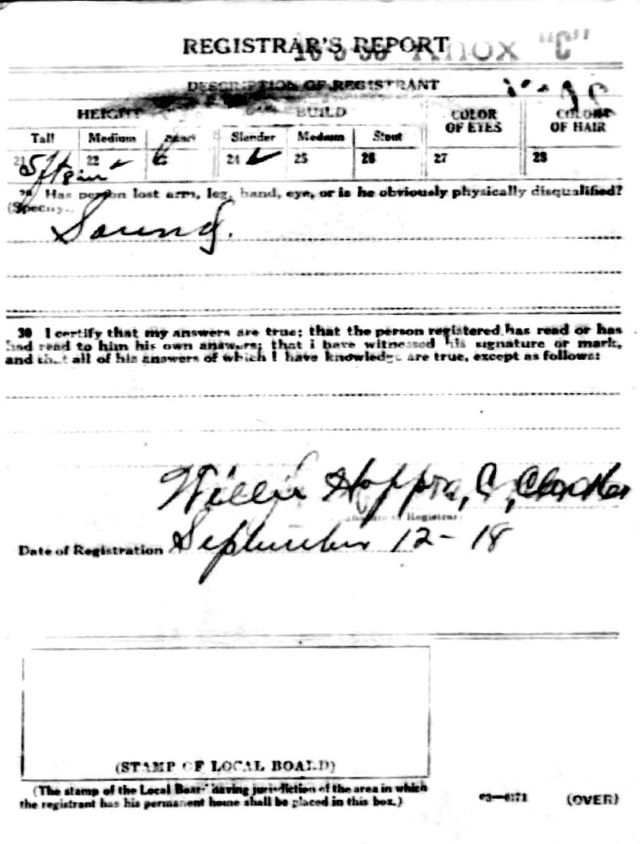 REGISTRAR'S REPORT
Knox "C"
DESCRIPTION OF REGISTRANT
HEIGHT BUILD COLOR OF EYES COLOR OF HAIR
Tall Medium Short Slender Medium Stout
21 22 ✓ 24 ✓ 25 26 27 28
5 ft 8 in
29 Has person lost arm, leg, hand, eye, or is he obviously physically disqualified?
(Specify.)
Sound.
30 I certify that my answers are true; that the person registered has read or has
had read to him his own answers; that I have witnessed his signature or mark,
and that all of his answers of which I have knowledge are true, except as follows:
Willie
Registrar
Date of Registration September 12-18
(STAMP OF LOCAL BOARD)
(The stamp of the Local Board having jurisdiction of the area in which
the registrant has his permanent home shall be placed in this box.)
03-6171 (OVER)